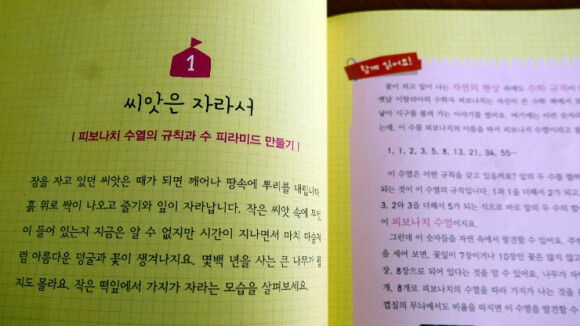 1
씨앗은 자라서
| 피보나치 수열의 규칙과 수 피라미드 만들기 |
잠을 자고 있던 씨앗은 때가 되면 깨어나 땅속에 뿌리를 내립니다.
흙 위로 싹이 나오고 줄기와 잎이 자라납니다. 작은 씨앗 속에
이 들어 있는지 지금은 알 수 없지만 시간이 지나면서 마치
럼 아름다운 덩굴과 꽃이 생겨나지요. 몇백 년을 사는 큰 나무가
지도 몰라요. 작은 떡잎에서 가지가 자라는 모습을 살펴보세요.
함께 읽어요!
꽃이 피고 잎이 나는 자연의 현상 속에도 수학 규칙이
옛날 이탈리아의 수학자 피보나치는 자신이 쓴 수학 책에서
낳아 식구를 불려 가는 이야기를 썼어요. 여기에는 이런 숫자
는데, 이 수를 피보나치의 이름을 따서 피보나치 수열이라고
1, 1, 2, 3, 5, 8, 13, 21, 34, 55…
이 수열은 어떤 규칙을 갖고 있을까요? 앞의 두 수를 합
되는 것이 이 수열의 규칙입니다. 1과 1을 더해서 2가 되고,
3, 2와 3을 더해서 5가 되는 식으로 바로 앞의 두 수의 합
이 피보나치 수열이지요.
그런데 이 숫자들을 자연 속에서 발견할 수 있어요. 주
을 세어 보면, 꽃잎이 7장이거나 10장인 꽃은 많지 않고
장, 8장으로 되어 있다는 것을 알 수 있어요. 나무가 자
개, 8개로 피보나치의 수열을 따라 가지가 나는 것을
껍질의 무늬에서도 비율을 따지면 이 수열을 발견할 수